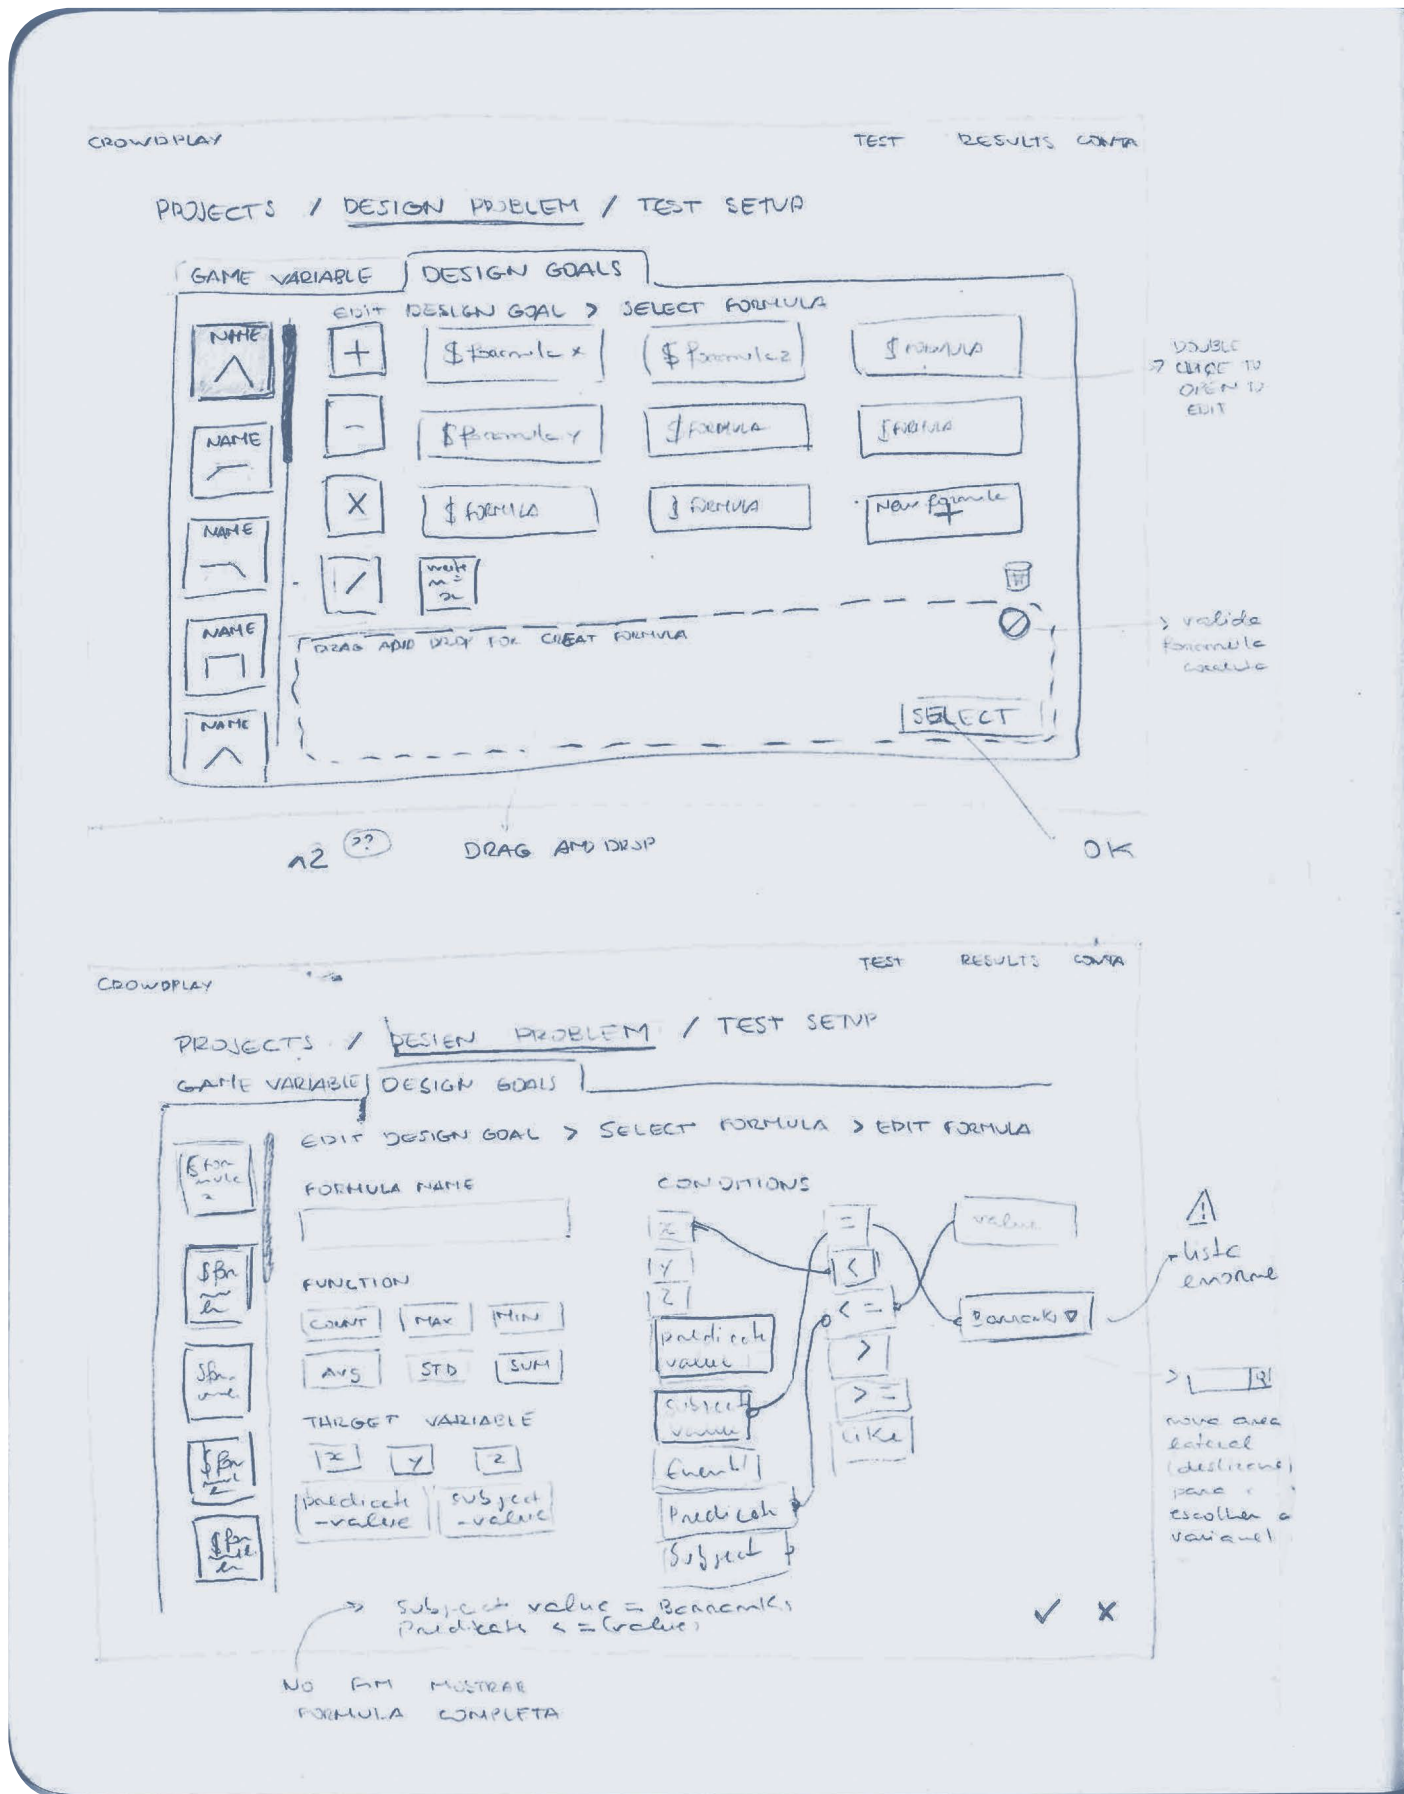 CROWDPLAY TEST RESULTS CONTA
PROJECTS / DESIGN PROBLEM / TEST SETUP
GAME VARIABLE DESIGN GOALS
EDIT DESIGN GOAL > SELECT FORMULA
NAME + $ formula x $ formula z $ FORMULA
DOUBLE
> CLICK TO
OPEN TO
EDIT
NAME - $ formula y $ FORMULA $ FORMULA
NAME X $ FORMULA $ FORMULA New formula
+
/
NAME
DRAG AND DROP FOR CREAT FORMULA
> valida
formula
NAME
SELECT
n2 ?? DRAG AND DROP OK
CROWDPLAY TEST RESULTS CONTA
PROJECTS / DESIGN PROBLEM / TEST SETUP
GAME VARIABLE DESIGN GOALS
EDIT DESIGN GOAL > SELECT FORMULA > EDIT FORMULA
$ for
mula
z
FORMULA NAME
FUNCTION
COUNT MAX MIN
AVG STD SUM
TARGET VARIABLE
x y z
predicate
-value
subject
-value
CONDITIONS
x
y
z
predicate
value
subject
value
Event
Predicate
Subject
=
<
< =
>
> =
Like
value
lista
enorme
>
nova area
lateral
(deslizante)
para
escolher a
variavel
subject value =
Predicate < = (value)
✓ x
NO FIM MOSTRAR
FORMULA COMPLETA